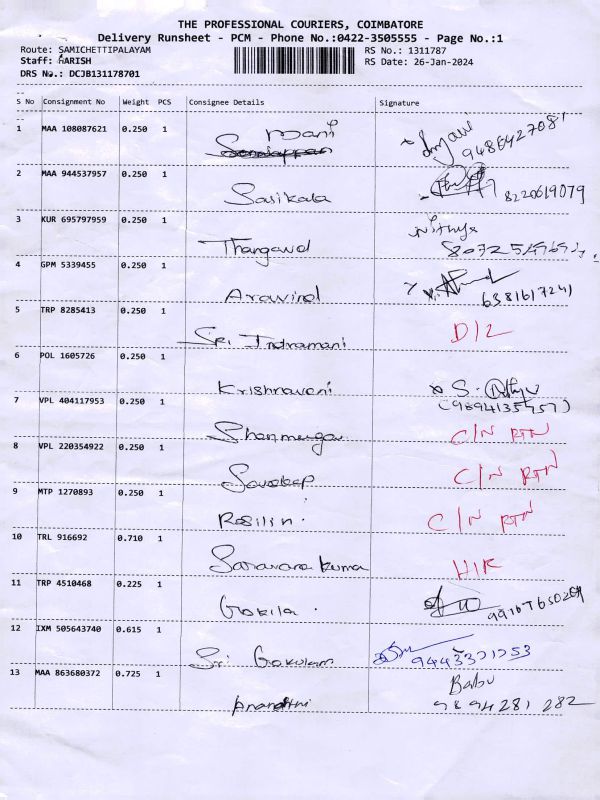 THE PROFESSIONAL COURIERS, COIMBATORE
Delivery Runsheet - PCM - Phone No.:0422-3505555 - Page No.:1
Route: SAMICHETTIPALAYAM RS No.: 1311787
Staff: HARISH RS Date: 26-Jan-2024
DRS No.: DCJB131178701
S No Consignment No Weight PCS Consignee Details Signature
1 MAA 108087621 0.250 1 Mani 9486427081
2 MAA 944537957 0.250 1 Sasikala 8220619079
3 KUR 695797959 0.250 1 Thangavel Nithya
4 GPM 5339455 0.250 1 Aravind 6381617241
5 TRP 8285413 0.250 1 Sri Indramani D/L
6 POL 1605726 0.250 1 Krishnaveni S.
(9694135457)
7 VPL 404117953 0.250 1 Shanmuga C/N RTN
8 VPL 220354922 0.250 1 C/N RTN
9 MTP 1270893 0.250 1 Rosilin. C/N RTN
10 TRL 916692 0.710 1 Saravana Kumar
11 TRP 4510468 0.225 1 Gokila.
12 IXM 505643740 0.615 1 Sri Gokulam 9443321253
13 MAA 863680372 0.725 1 Babu
9894281282